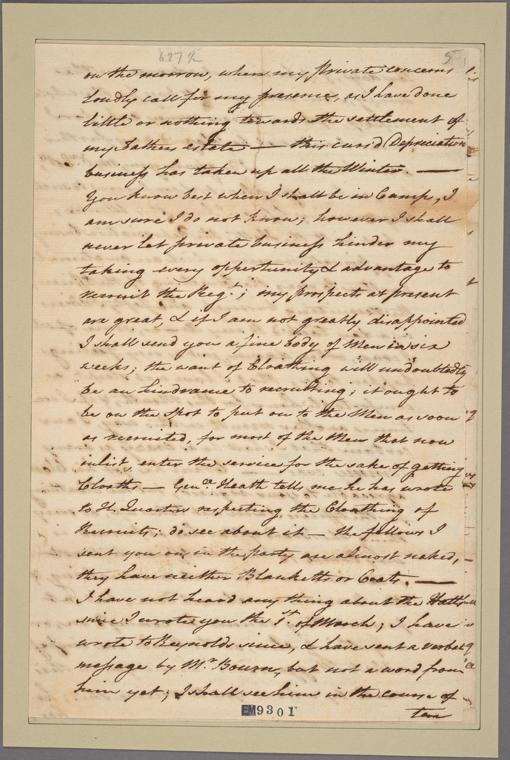 6872
5
on the morrow, where my private concerns
loudly call for my presence, as I have done
little or nothing towards the settlement of
my Fathers estate — this curs'd Depreciation
business has taken up all the Winter. —
You know best when I shall be in Camp, I
am sure I do not know; however I shall
never let private business hinder my
taking every oppertunity & advantage to
recruit the Reg.t; my prospects at present
are great, & if I am not greatly disappointed
I shall send you a fine body of Men in six
weeks; the want of Cloathing will undoubtedly
be an hindrance to recruiting; it ought to
be on the spot to put on to the Men as soon
as recruited, for most of the Men that now
inlist, enter the service for the sake of getting
Cloaths. — Gen.l Heath tells me he has wrote
to H. Quarters respecting the Cloathing of
Recruits; do see about it — the fellows I
sent you on in the party are almost naked,
they have neither Blanketts or Coats. —
I have not heard any thing about the Hatts
since I wrote you the 1st. of March; I have
wrote to Reynolds since, & have sent a verbal
message by Mr. Bourn, but not a word from
him yet; I shall see him in the course of
ten
EM9301